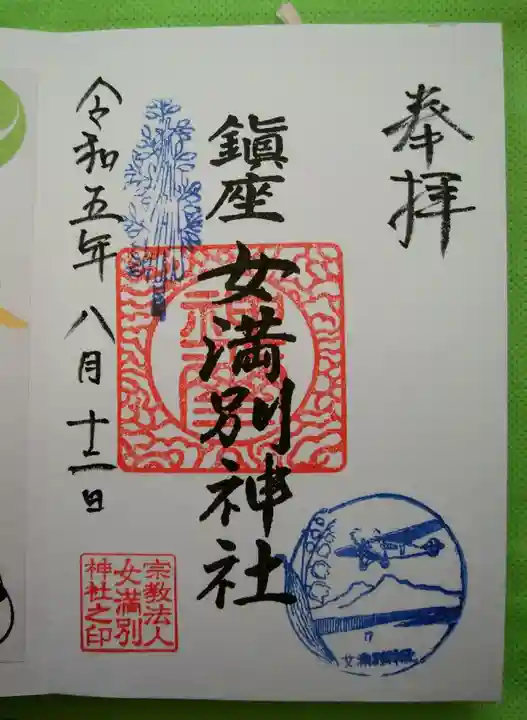 奉拝
鎭座 女満別神社
令和五年 八月十二日
宗教法人
女満別
神社之印
女満別神社